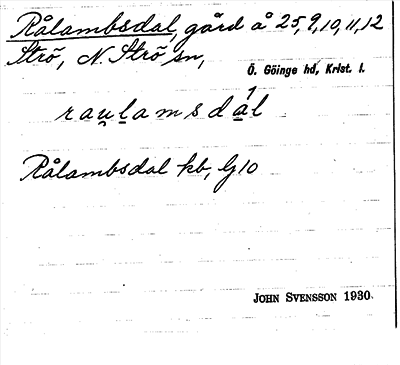 Rålambsdal, gård å 25,9,10,11,12
Strö, N. Strö sn,
Ö. Göinge hd, Krist. l.
rau̯l̲amsdál
Rålambsdal kb, G10
JOHN SVENSSON 1930.